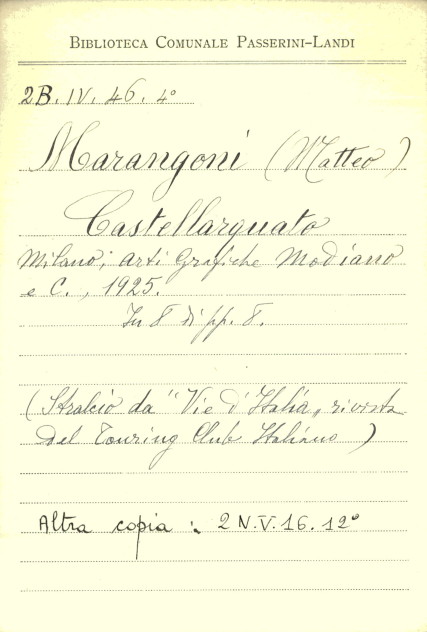 BIBLIOTECA COMUNALE PASSERINI-LANDI
2B. IV. 46. 4°
Marangoni (Matteo)
Castellarquato
Milano; Arti Grafiche Modiano
e C., 1925.
In 8 di pp. 8.
(Stralcio da "Vie d'Italia" rivista
del Touring Club Italiano)
Altra copia: 2 N.V.16.12°